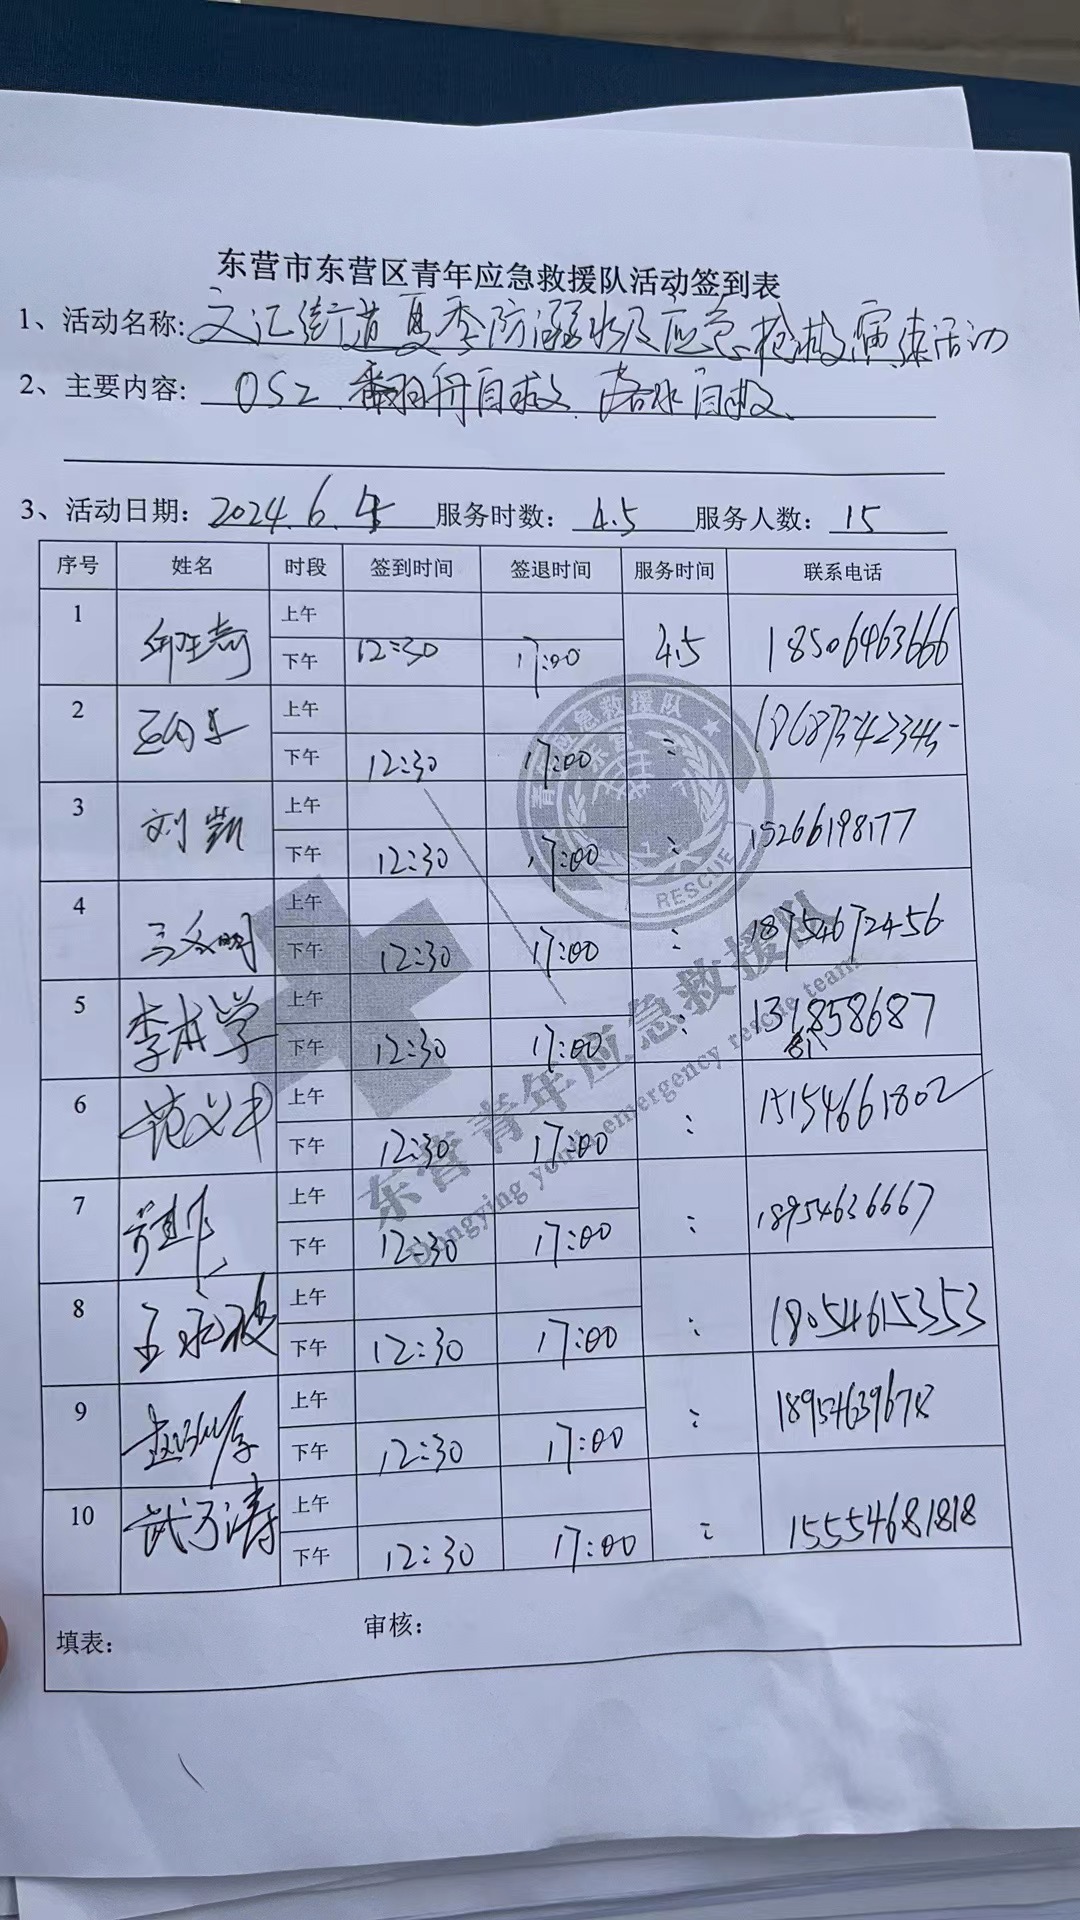 东营市东营区青年应急救援队活动签到表
1、活动名称: 文汇街道夏季防溺水及应急抢救演练活动
2、主要内容: OS2 翻舟自救 落水自救、
3、活动日期: 2024.6.4 服务时数: 4.5 服务人数: 15
序号 姓名 时段 签到时间 签退时间 服务时间 联系电话
1 上午
下午 12:30 17:00 4.5 18506463666
2 上午
下午 12:30 17:00
3 刘凯 上午
下午 12:30 17:00 15266198177
4 上午
下午 12:30 17:00 18754672456
5 李本学 上午
下午 12:30 17:00
6 范义中 上午
下午 12:30 17:00 15154661802
7 上午
下午 12:30 17:00 18954636667
8 王永波 上午
下午 12:30 17:00 18054615353
9 上午
下午 12:30 17:00
10 武子涛 上午
下午 12:30 17:00 15554681818
填表: 审核:
青年应急救援队
东营
RESCUE
东营青年应急救援队
Dongying youth emergency rescue team